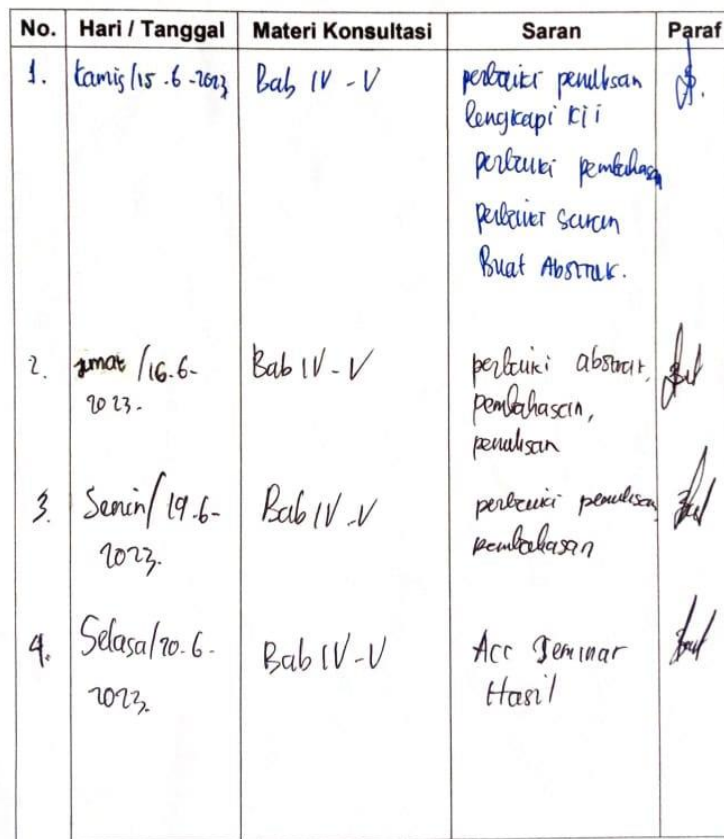 No. Hari / Tanggal Materi Konsultasi Saran Paraf
1. Kamis/15-6-2023 Bab IV - V perbaiki penulisan
lengkapi
perbaiki pembahasan
perbaiki saran
Buat Abstrak.
2. Jumat /16-6- Bab IV - V perbaiki abstrak,
2023. pembahasan,
penulisan
3. Senin/19-6- Bab IV - V perbaiki penulisan
2023. pembahasan
4. Selasa/20-6- Bab IV - V Acc Seminar
2023. Hasil